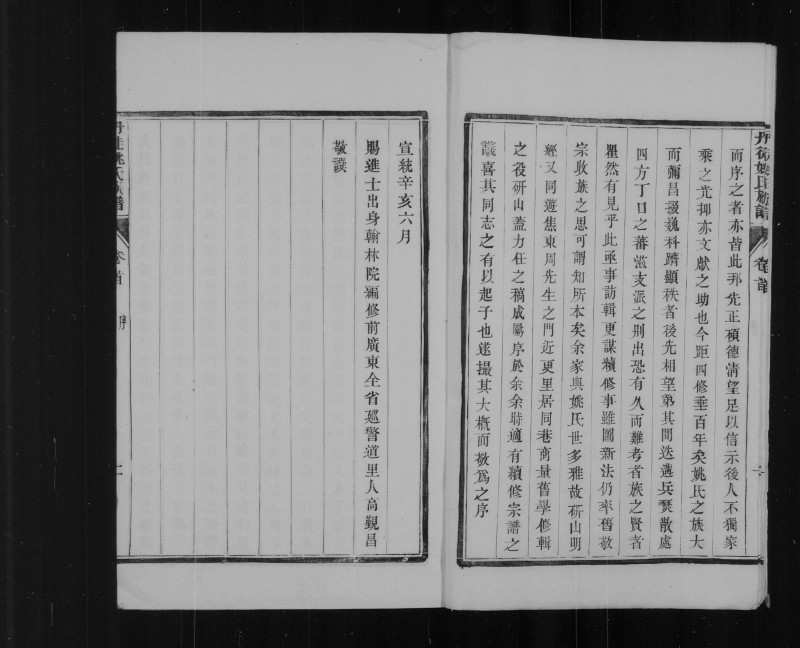 丹徒姚氏族譜
卷首
二
而序之者亦皆此邦先正碩德清望足以信示後人不獨家
乘之光抑亦文獻之助也今距四修垂百年矣姚氏之族大
而彌昌掇巍科躋顯秩者後先相望第其間迭遘兵燹散處
四方丁口之蕃滋支派之別出恐有久而難考者族之賢者
瞿然有見乎此亟事訪輯更謀續修事雖圖新法仍率舊敬
宗收族之思可謂知所本矣余家與姚氏世多雅故硏山明
經又同遊焦東周先生之門近更里居同巷商量舊學修輯
之役硏山蓋力任之稿成屬序於余余時適有續修宗譜之
議喜其同志之有以起予也遂撮其大概而敬為之序
宣統辛亥六月
賜進士出身翰林院編修前廣東全省巡警道里人高覲昌
敬譔
丹徒姚氏族譜
卷首
序